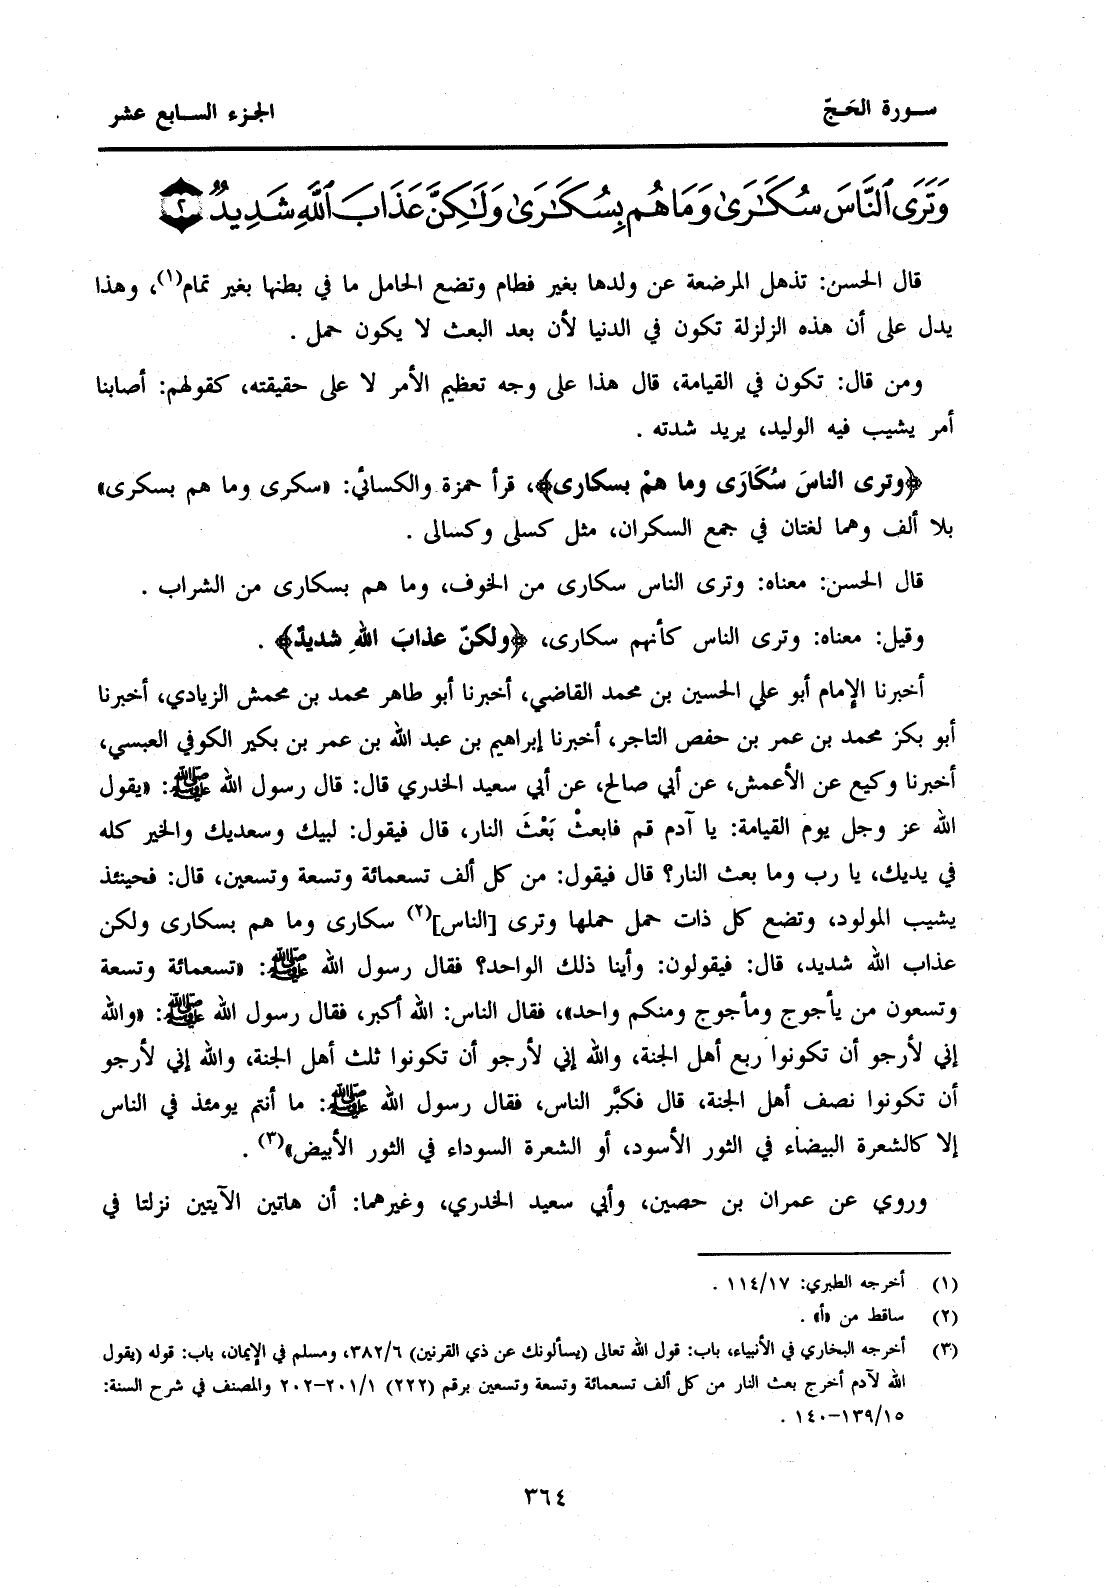 سـورة الحَـجّ
الجـزء السـابع عشر
وَتَرَى ٱلنَّاسَ سُكَٰرَىٰ وَمَا هُم بِسُكَٰرَىٰ وَلَٰكِنَّ عَذَابَ ٱللَّهِ شَدِيدٌ ٢
قال الحسن: تذهل المرضعة عن ولدها بغير فطام وتضع الحامل ما في بطنها بغير تمام(١)، وهذا
يدل على أن هذه الزلزلة تكون في الدنيا لأن بعد البعث لا يكون حمل .
ومن قال: تكون في القيامة، قال هذا على وجه تعظيم الأمر لا على حقيقته، كقولهم: أصابنا
أمر يشيب فيه الوليد، يريد شدته .
﴿وترى الناسَ سُكَارَى وما همْ بسكارى﴾، قرأ حمزة والكسائي: «سكرى وما هم بسكرى»
بلا ألف وهما لغتان في جمع السكران، مثل كسلى وكسالى .
قال الحسن: معناه: وترى الناس سكارى من الخوف، وما هم بسكارى من الشراب .
وقيل: معناه: وترى الناس كأنهم سكارى، ﴿ولكنّ عذابَ اللهِ شديدٌ﴾ .
أخبرنا الإمام أبو علي الحسين بن محمد القاضي، أخبرنا أبو طاهر محمد بن محمش الزيادي، أخبرنا
أبو بكز محمد بن عمر بن حفص التاجر، أخبرنا إبراهيم بن عبد الله بن عمر بن بكير الكوفي العبسي،
أخبرنا وكيع عن الأعمش، عن أبي صالح، عن أبي سعيد الخدري قال: قال رسول الله ﷺ: «يقول
الله عز وجل يوم القيامة: يا آدم قم فابعثْ بَعْثَ النار، قال فيقول: لبيك وسعديك والخير كله
في يديك، يا رب وما بعث النار؟ قال فيقول: من كل ألف تسعمائة وتسعة وتسعين، قال: فحينئذ
يشيب المولود، وتضع كل ذات حمل حملها وترى [الناس](٢) سكارى وما هم بسكارى ولكن
عذاب الله شديد، قال: فيقولون: وأينا ذلك الواحد؟ فقال رسول الله ﷺ: «تسعمائة وتسعة
وتسعون من يأجوج ومأجوج ومنكم واحد»، فقال الناس: الله أكبر، فقال رسول الله ﷺ: «والله
إني لأرجو أن تكونوا ربع أهل الجنة، والله إني لأرجو أن تكونوا ثلث أهل الجنة، والله إني لأرجو
أن تكونوا نصف أهل الجنة، قال فكبَّر الناس، فقال رسول الله ﷺ: ما أنتم يومئذ في الناس
إلا كالشعرة البيضاء في الثور الأسود، أو الشعرة السوداء في الثور الأبيض»(٣) .
وروي عن عمران بن حصين، وأبي سعيد الخدري، وغيرهما: أن هاتين الآيتين نزلتا في
(١) أخرجه الطبري: ١١٤/١٧ .
(٢) ساقط من «أ» .
(٣) أخرجه البخاري في الأنبياء، باب: قول الله تعالى (يسألونك عن ذي القرنين) ٣٨٢/٦، ومسلم في الإيمان، باب: قوله (يقول
الله لآدم أخرج بعث النار من كل ألف تسعمائة وتسعة وتسعين برقم (٢٢٢) ٢٠١/١-٢٠٢ والمصنف في شرح السنة:
١٣٩/١٥-١٤٠ .
٣٦٤